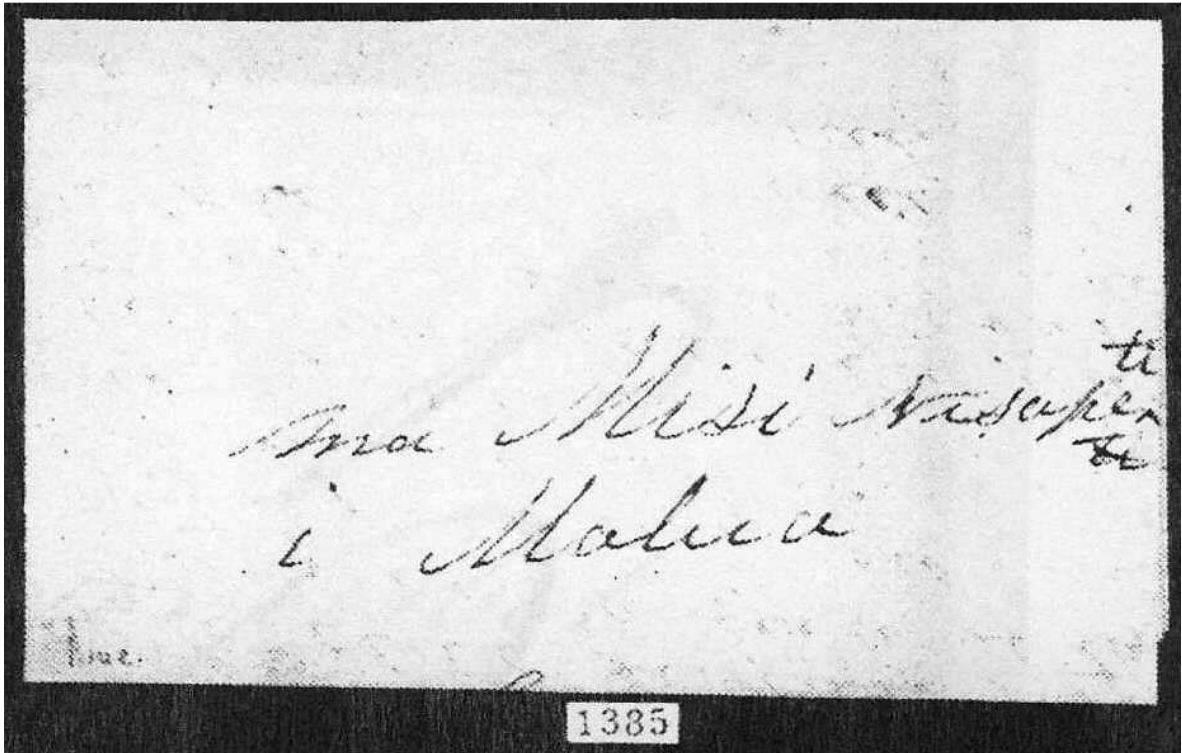 ma Misi Nisapeti
i Malua
1385